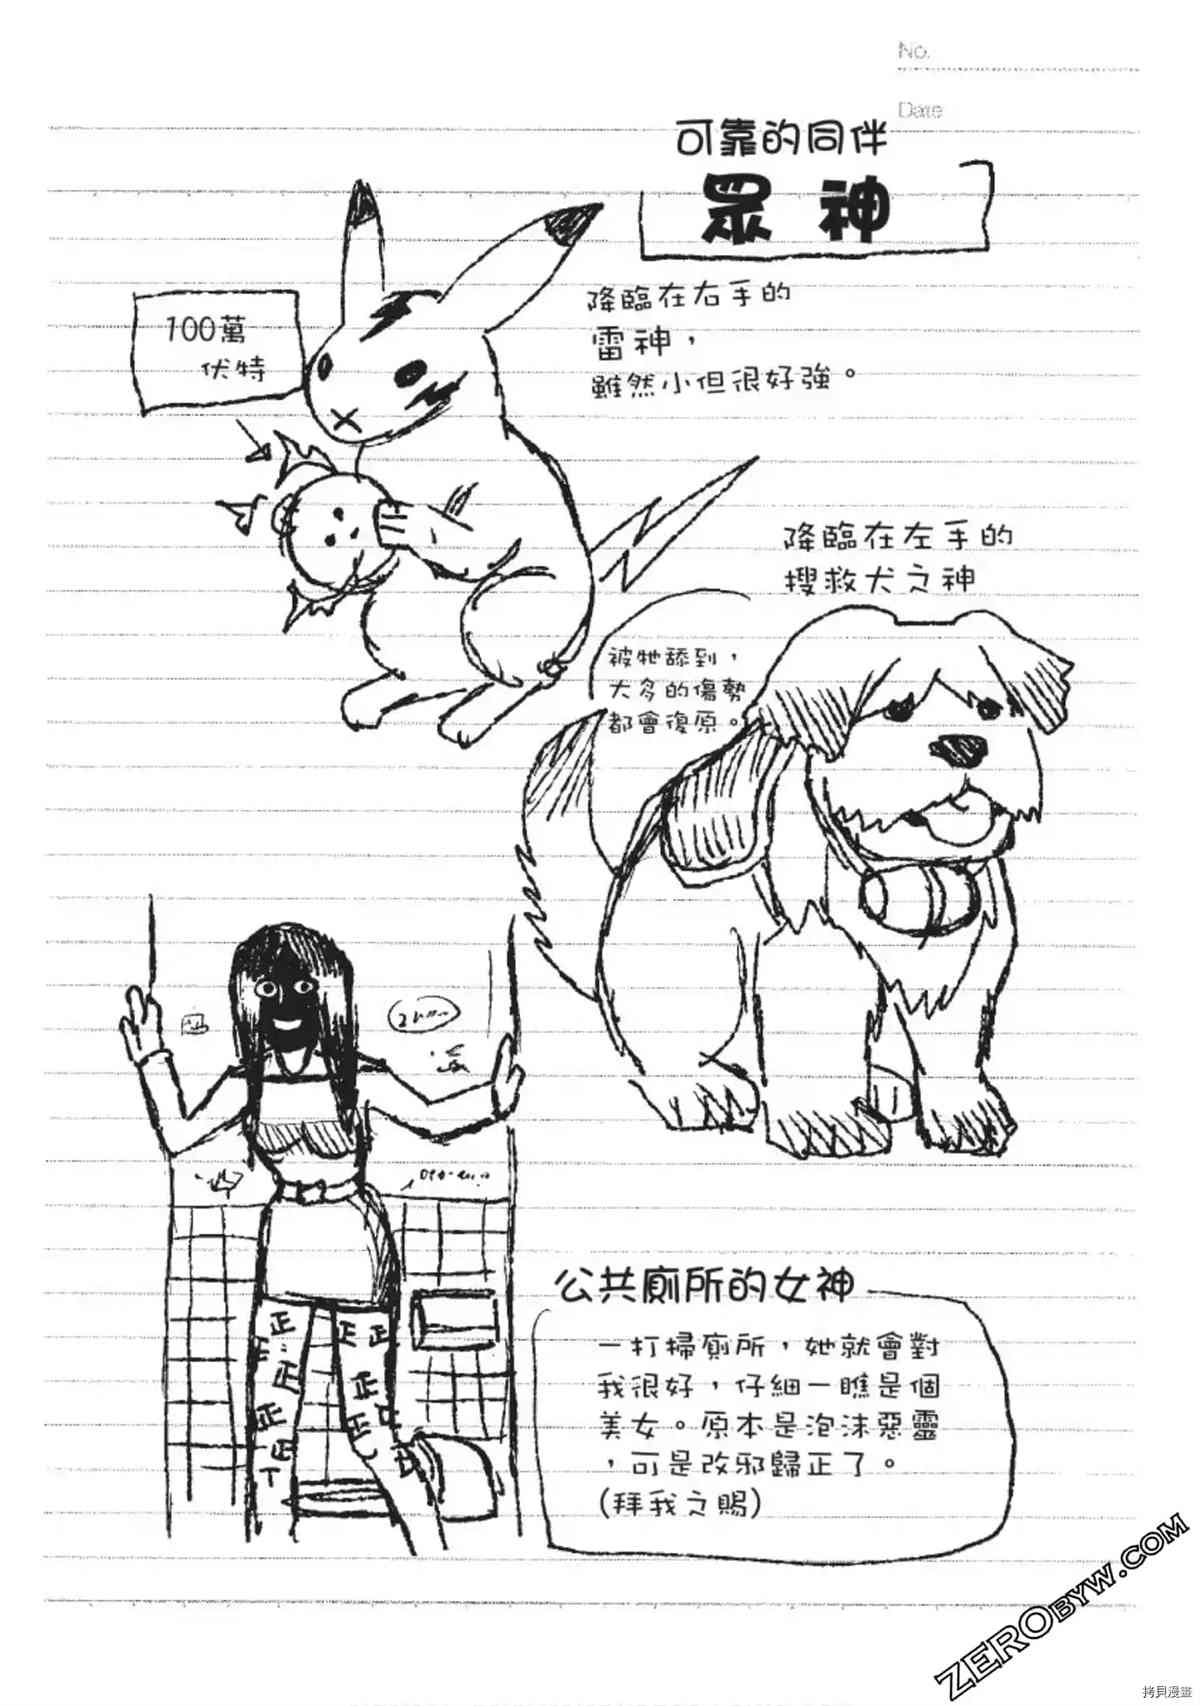 No.
Date
可靠的同伴
眾神
降臨在右手的
雷神，
雖然小但很好強。
100萬
伏特
降臨在左手的
搜救犬之神
被牠舔到，
大多的傷勢
都會復原。
公共廁所的女神
一打掃廁所，她就會對
我很好，仔細一瞧是個
美女。原本是泡沫惡靈
，可是改邪歸正了。
(拜我之賜)
正
正 正
正
正 正
正 正
正
T
ZEROBYW.COM
拷貝漫畫